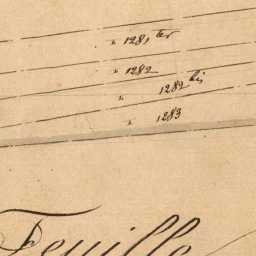 " 1281 ter
" 1282
" 1282 bis
" 1283
Feuille